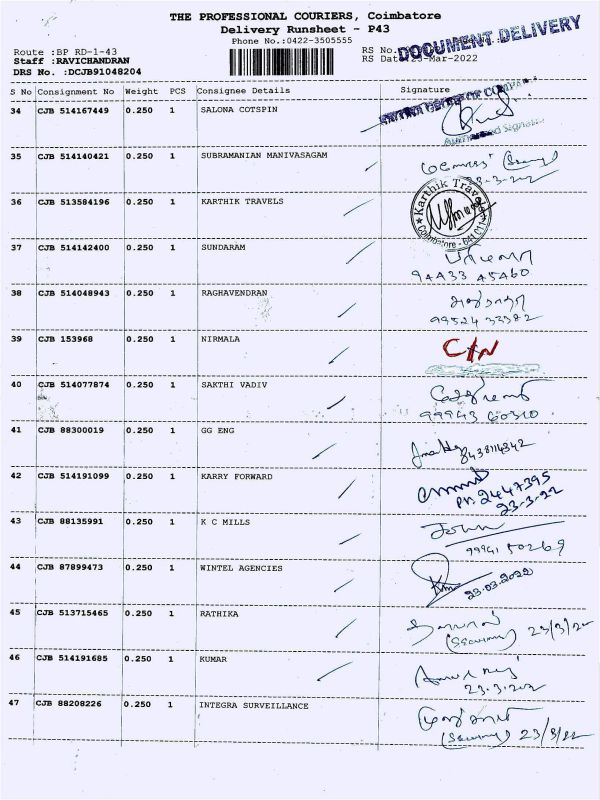 THE PROFESSIONAL COURIERS, Coimbatore
Delivery Runsheet - P43
Phone No.:0422-3505555
DOCUMENT DELIVERY
Route :BP RD-1-43
RS No.
Staff :RAVICHANDRAN
RS Date: 23-Mar-2022
DRS No. :DCJB91048204
S No Consignment No Weight PCS Consignee Details Signature
34 CJB 514167449 0.250 1 SALONA COTSPIN
35 CJB 514140421 0.250 1 SUBRAMANIAN MANIVASAGAM
23-3-2022
36 CJB 513584196 0.250 1 KARTHIK TRAVELS
Karthik Travels
Coimbatore - 641 01
37 CJB 514142400 0.250 1 SUNDARAM
94433 45460
38 CJB 514048943 0.250 1 RAGHAVENDRAN
99524 33382
39 CJB 153968 0.250 1 NIRMALA
C/N
40 CJB 514077874 0.250 1 SAKTHI VADIV
99943 60310
41 CJB 88300019 0.250 1 GG ENG
8438114342
42 CJB 514191099 0.250 1 KARRY FORWARD
PN: 2447395
23-3-22
43 CJB 88135991 0.250 1 K C MILLS
John
99941 50269
44 CJB 87899473 0.250 1 WINTEL AGENCIES
23.03.2022
45 CJB 513715465 0.250 1 RATHIKA
23/3/22
46 CJB 514191685 0.250 1 KUMAR
23-3-202
47 CJB 88208226 0.250 1 INTEGRA SURVEILLANCE
23/3/22